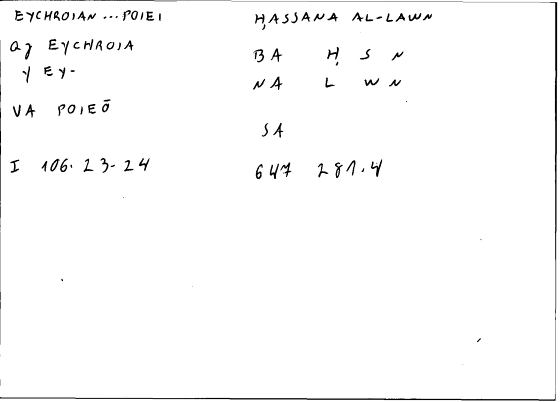 EYCHROIAN ... POIEI ḤASSANA AL-LAWN
aj EYCHROIA BA Ḥ S N
y EY- NA L W N
VA POIEŌ
SA
I 106.23-24 647 281.4